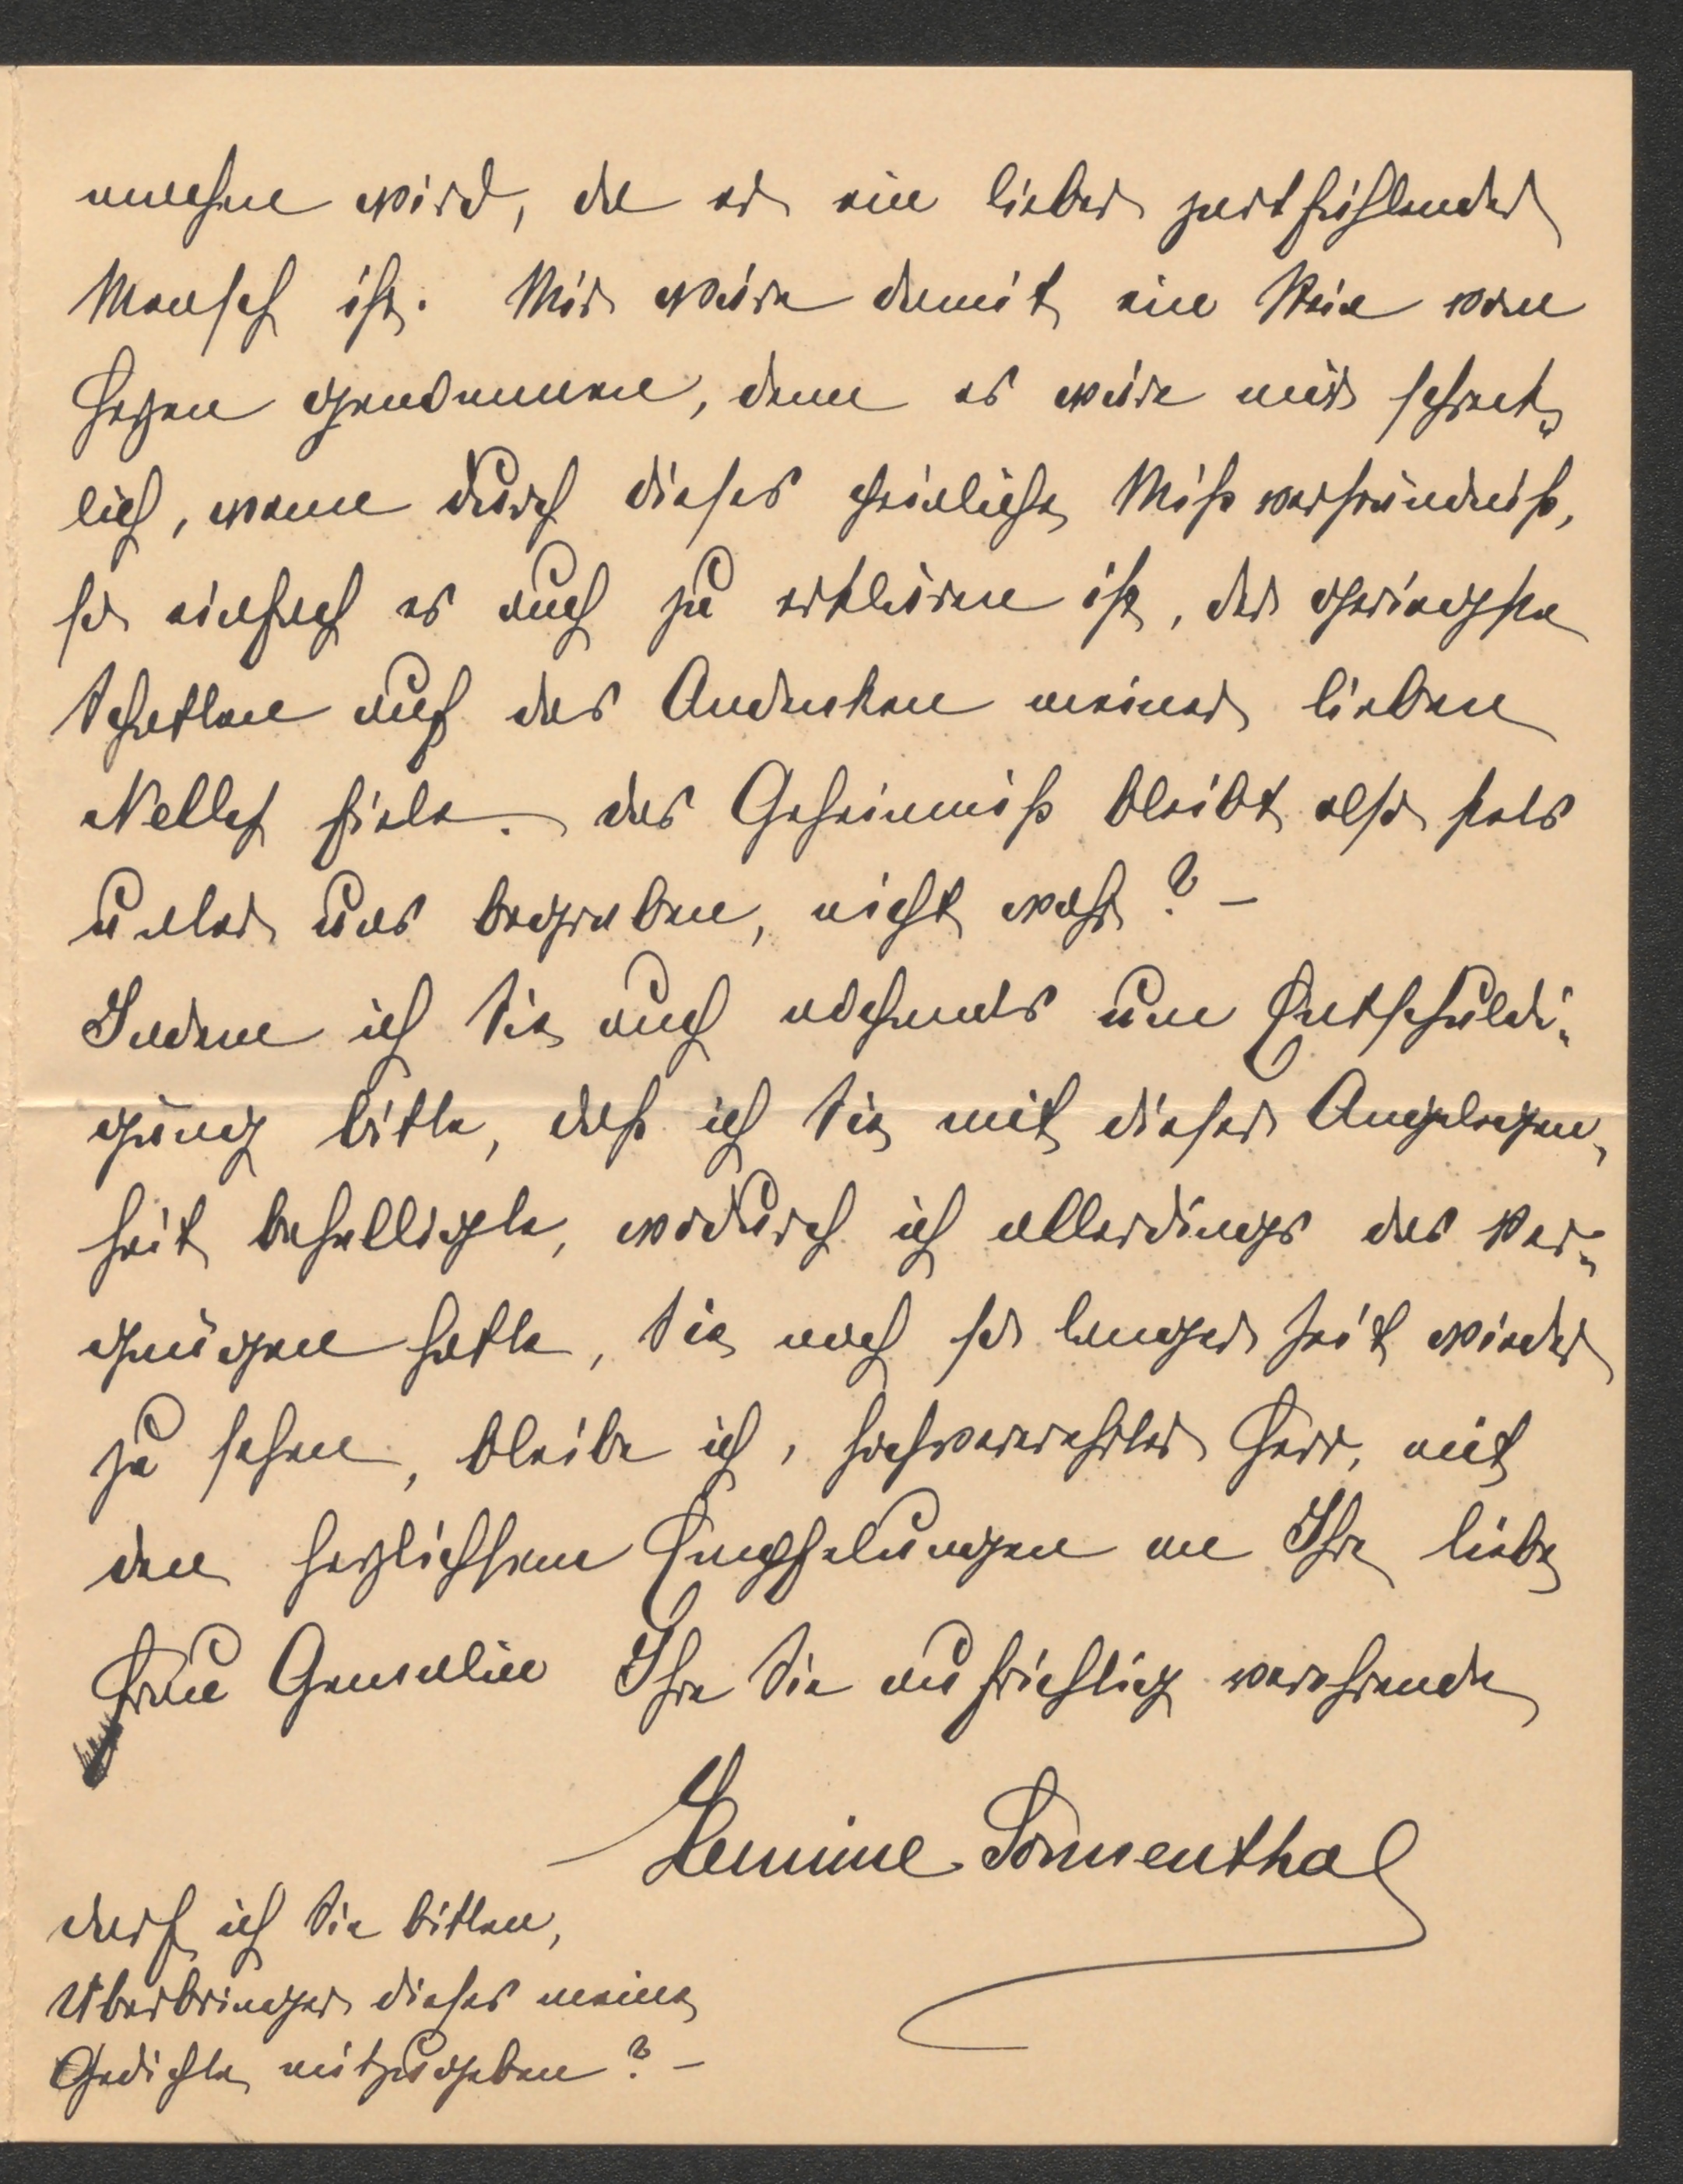 machen wird, da er ein lieber zartfühlender
Mensch ist. Mir wäre damit ein Stein vom
Herzen genommen, denn es wäre mir schreck-
lich, wenn durch dieses peinliche Mißverständniß,
so einfach es auch zu erklären ist, der geringste
Schatten auf das Andenken meiner lieben
Nelly fiele. Das Geheimniß bleibt also stets
unter uns begraben, nicht wahr? –
Indem ich Sie auch nochmals um Entschuldi-
gung bitte, daß ich Sie mit dieser Angelegen-
heit behelligte, wodurch ich allerdings das Ver-
gnügen hatte, Sie nach so langer Zeit wieder
zu sehen, bleibe ich, hochverehrter Herr, mit
den herzlichsten Empfelungen an Ihre liebe
Frau Gemalin Ihre Sie aufrichtig verehrende
Hermine Sonnenthal
Darf ich Sie bitten,
Überbringer dieses meine
Gedichte mitzugeben? –